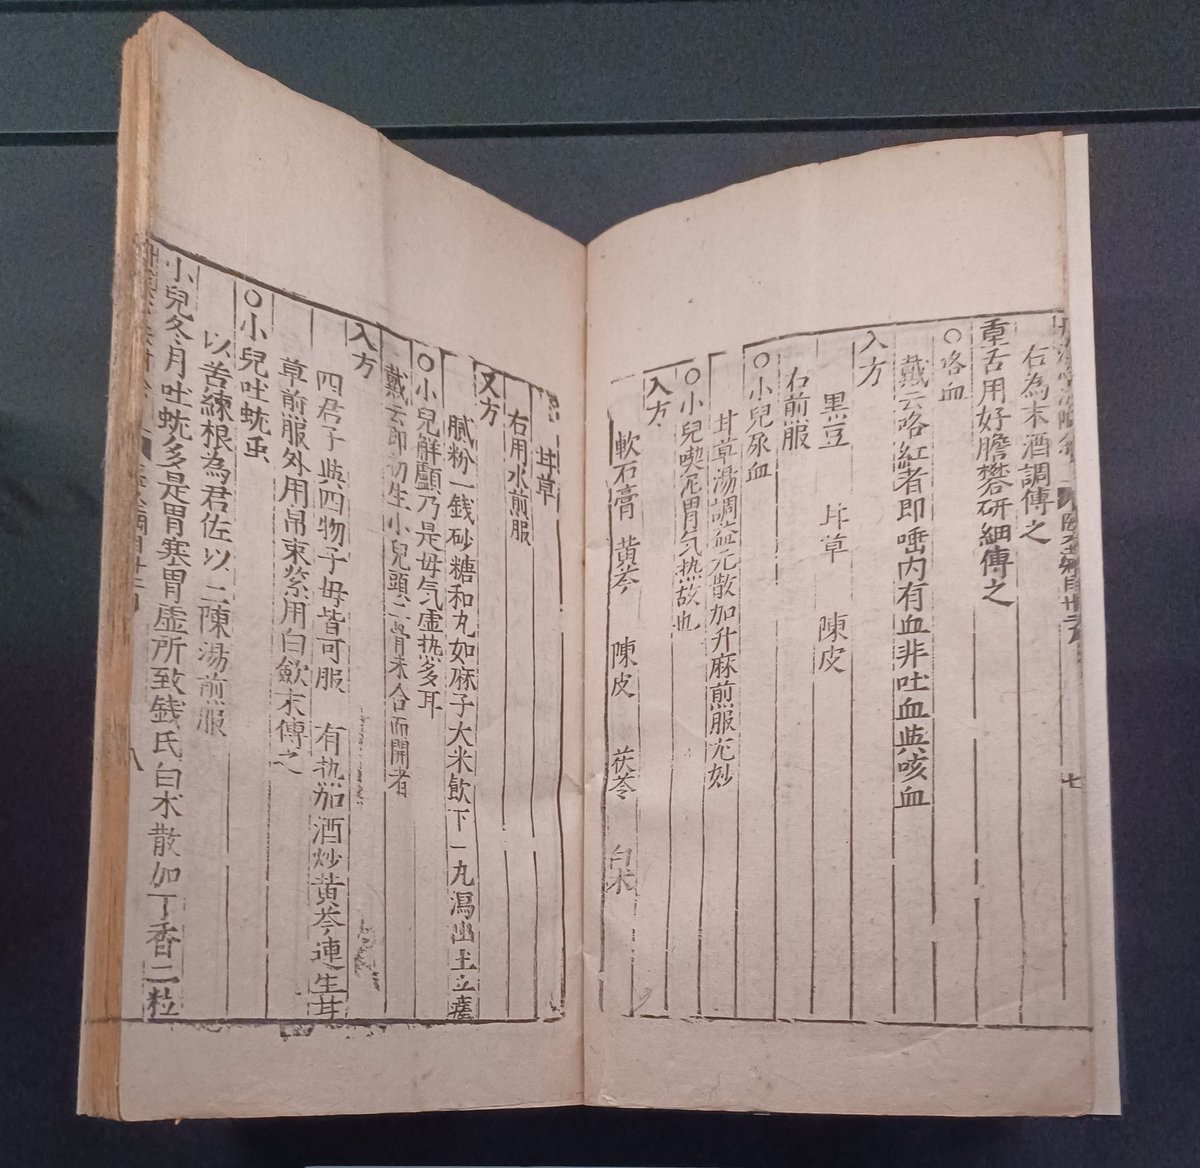 右為末酒調傅之
重舌用好膽礬研細傅之
○咯血
戴云咯紅者即啑內有血非吐血與咳血
入方
黑豆 甘草 陳皮
右煎服
○小兒尿血
甘草湯調益元散加升麻煎服尤妙
○小兒喫泥胃氣热故也
入方
軟石膏 黄芩 陳皮 茯苓 白术
甘草
右用水煎服
又方
膩粉一錢砂糖和丸如麻子大米飲下一丸瀉出土立瘥
○小兒解顱乃是母气虚热多耳
戴云即初生小兒頭骨未合而開者
入方
四君子與四物子母皆可服 有热加酒炒黄芩連生甘
草煎服外用帛束緊用白歛末傅之
○小兒吐蚘虫
以苦練根為君佐以二陳湯煎服
小兒冬月吐蚘多是胃寒胃虚所致錢氏白术散加丁香二粒
七
八